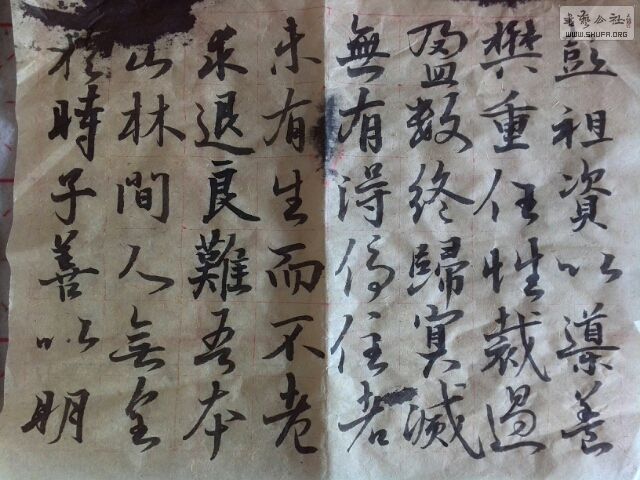 彭祖資以導養
樊重任性裁過
盈數終歸冥滅
無有得停住者
未有生而不老
求退良難吾本
山林間人無
於時子善以明
书艺公社
WWW.SHUFA.ORG